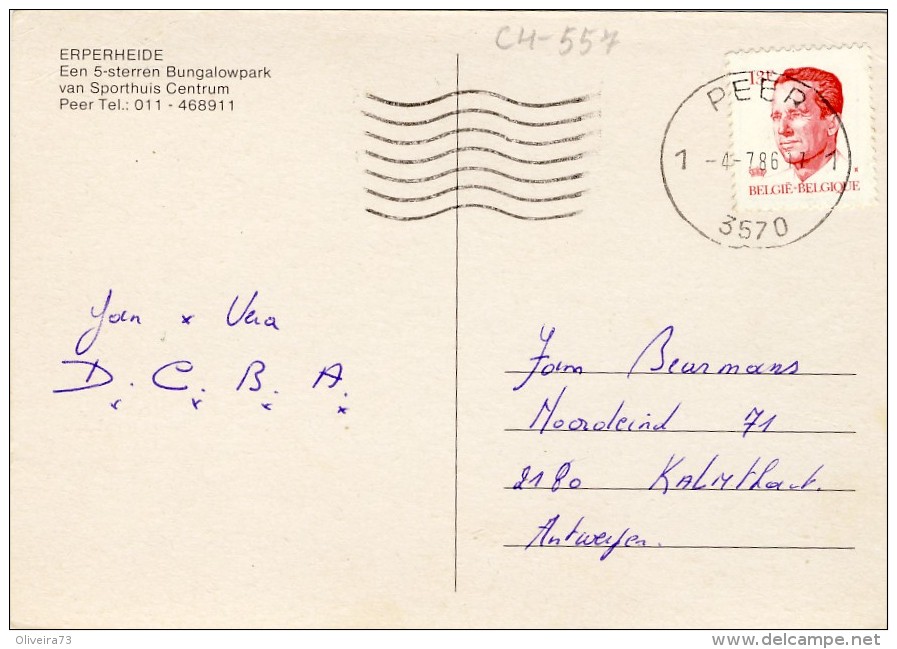 ERPERHEIDE
Een 5-sterren Bungalowpark
van Sporthuis Centrum
Peer Tel.: 011 - 468911
C4-557
13F
PEER
1 -4-786 1
3570
BELGIË-BELGIQUE
Jan x Vera
D. C. B. A.
x x x x
Fam Beurmans
Noordeind 71
2180 KALMthout.
Antwerpen.
Oliveira73
www.delcampe.net